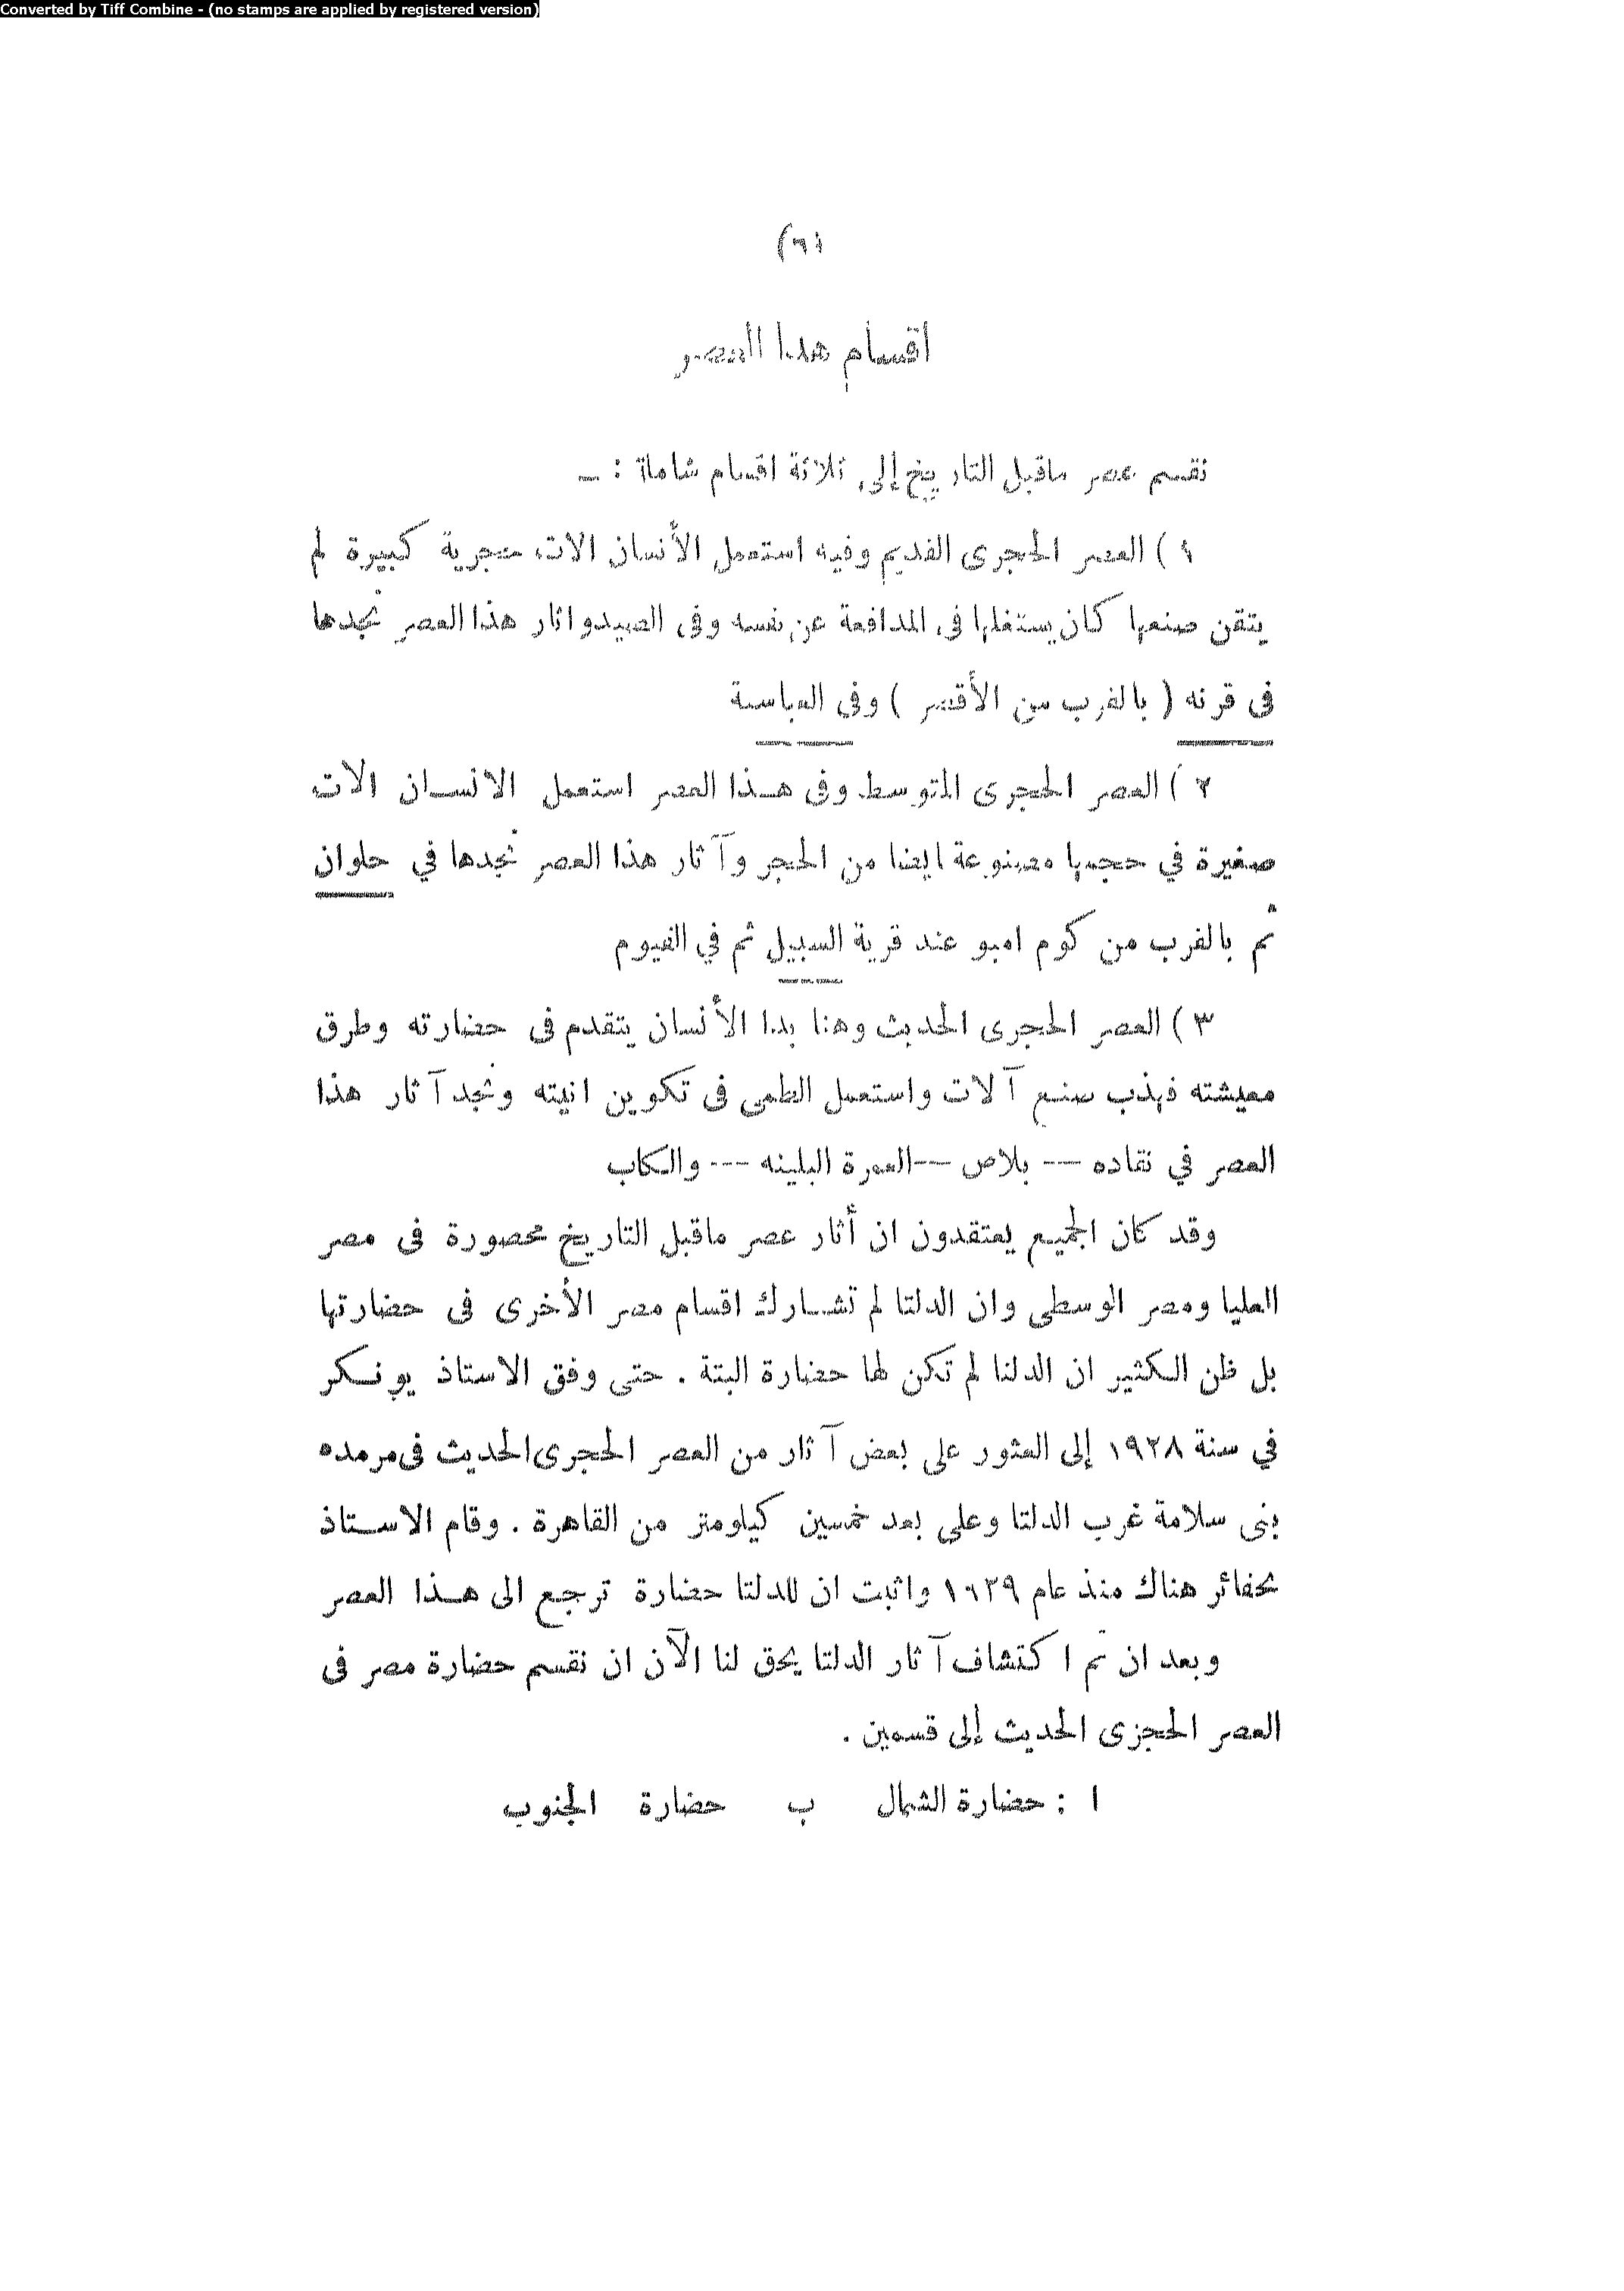 Converted by Tiff Combine - (no stamps are applied by registered version)
(٦)
اقسام هذا العصر
نقسم عصر ماقبل التاريخ إلى ثلاثة اقسام شاملة : ـ
١ ) العصر الحجرى القديم وفيه استعمل الأنسان الات حجرية كبيرة لم
يتقن صنعها كان يستغلها فى المدافعة عن نفسه وفى الصيد واثار هذا العصر نجدها
فى قرنه ( بالغرب من الأقصر ) وفى العباسة
٢ ) العصر الحجرى المتوسط وفى هـذا العصر استعمل الانسـان الات
صغيرة في حجمها مصنوعة ايضا من الحجر وآثار هذا العصر نجدها في حلوان
ثم بالغرب من كوم امبو عند قرية السبيل ثم في الفيوم
٣ ) العصر الحجرى الحديث وهنا بدا الأنسان يتقدم فى حضارته وطرق
معيشته فهذب صنع آلات واستعمل الطمى فى تكوين انيته ونجد آثار هذا
العصر في نقاده -- بلاص --العمرة البلينه --- والكاب
وقد كان الجميع يعتقدون ان أثار عصر ماقبل التاريخ محصورة فى مصر
العليا ومصر الوسطى وان الدلتا لم تشـارك اقسام مصر الأخرى فى حضارتها
بل ظن الكثير ان الدلتا لم تكن لها حضارة البتة . حتى وفق الاستاذ يونكر
في سنة ١٩٢٨ إلى العثور على بعض آثار من العصر الحجرى الحديث فى مرمده
بنى سلامة غرب الدلتا وعلى بعد خمسين كيلومتر من القاهرة . وقام الاسـتاذ
بحفائر هناك منذ عام ١٩٢٩ واثبت ان للدلتا حضارة ترجع الى هـذا العصر
وبعد ان تم اكتشاف آثار الدلتا يحق لنا الآن ان نقسم حضارة مصر فى
العصر الحجزى الحديث إلى قسمين .
ا : حضارة الشمال ب حضارة الجنوب